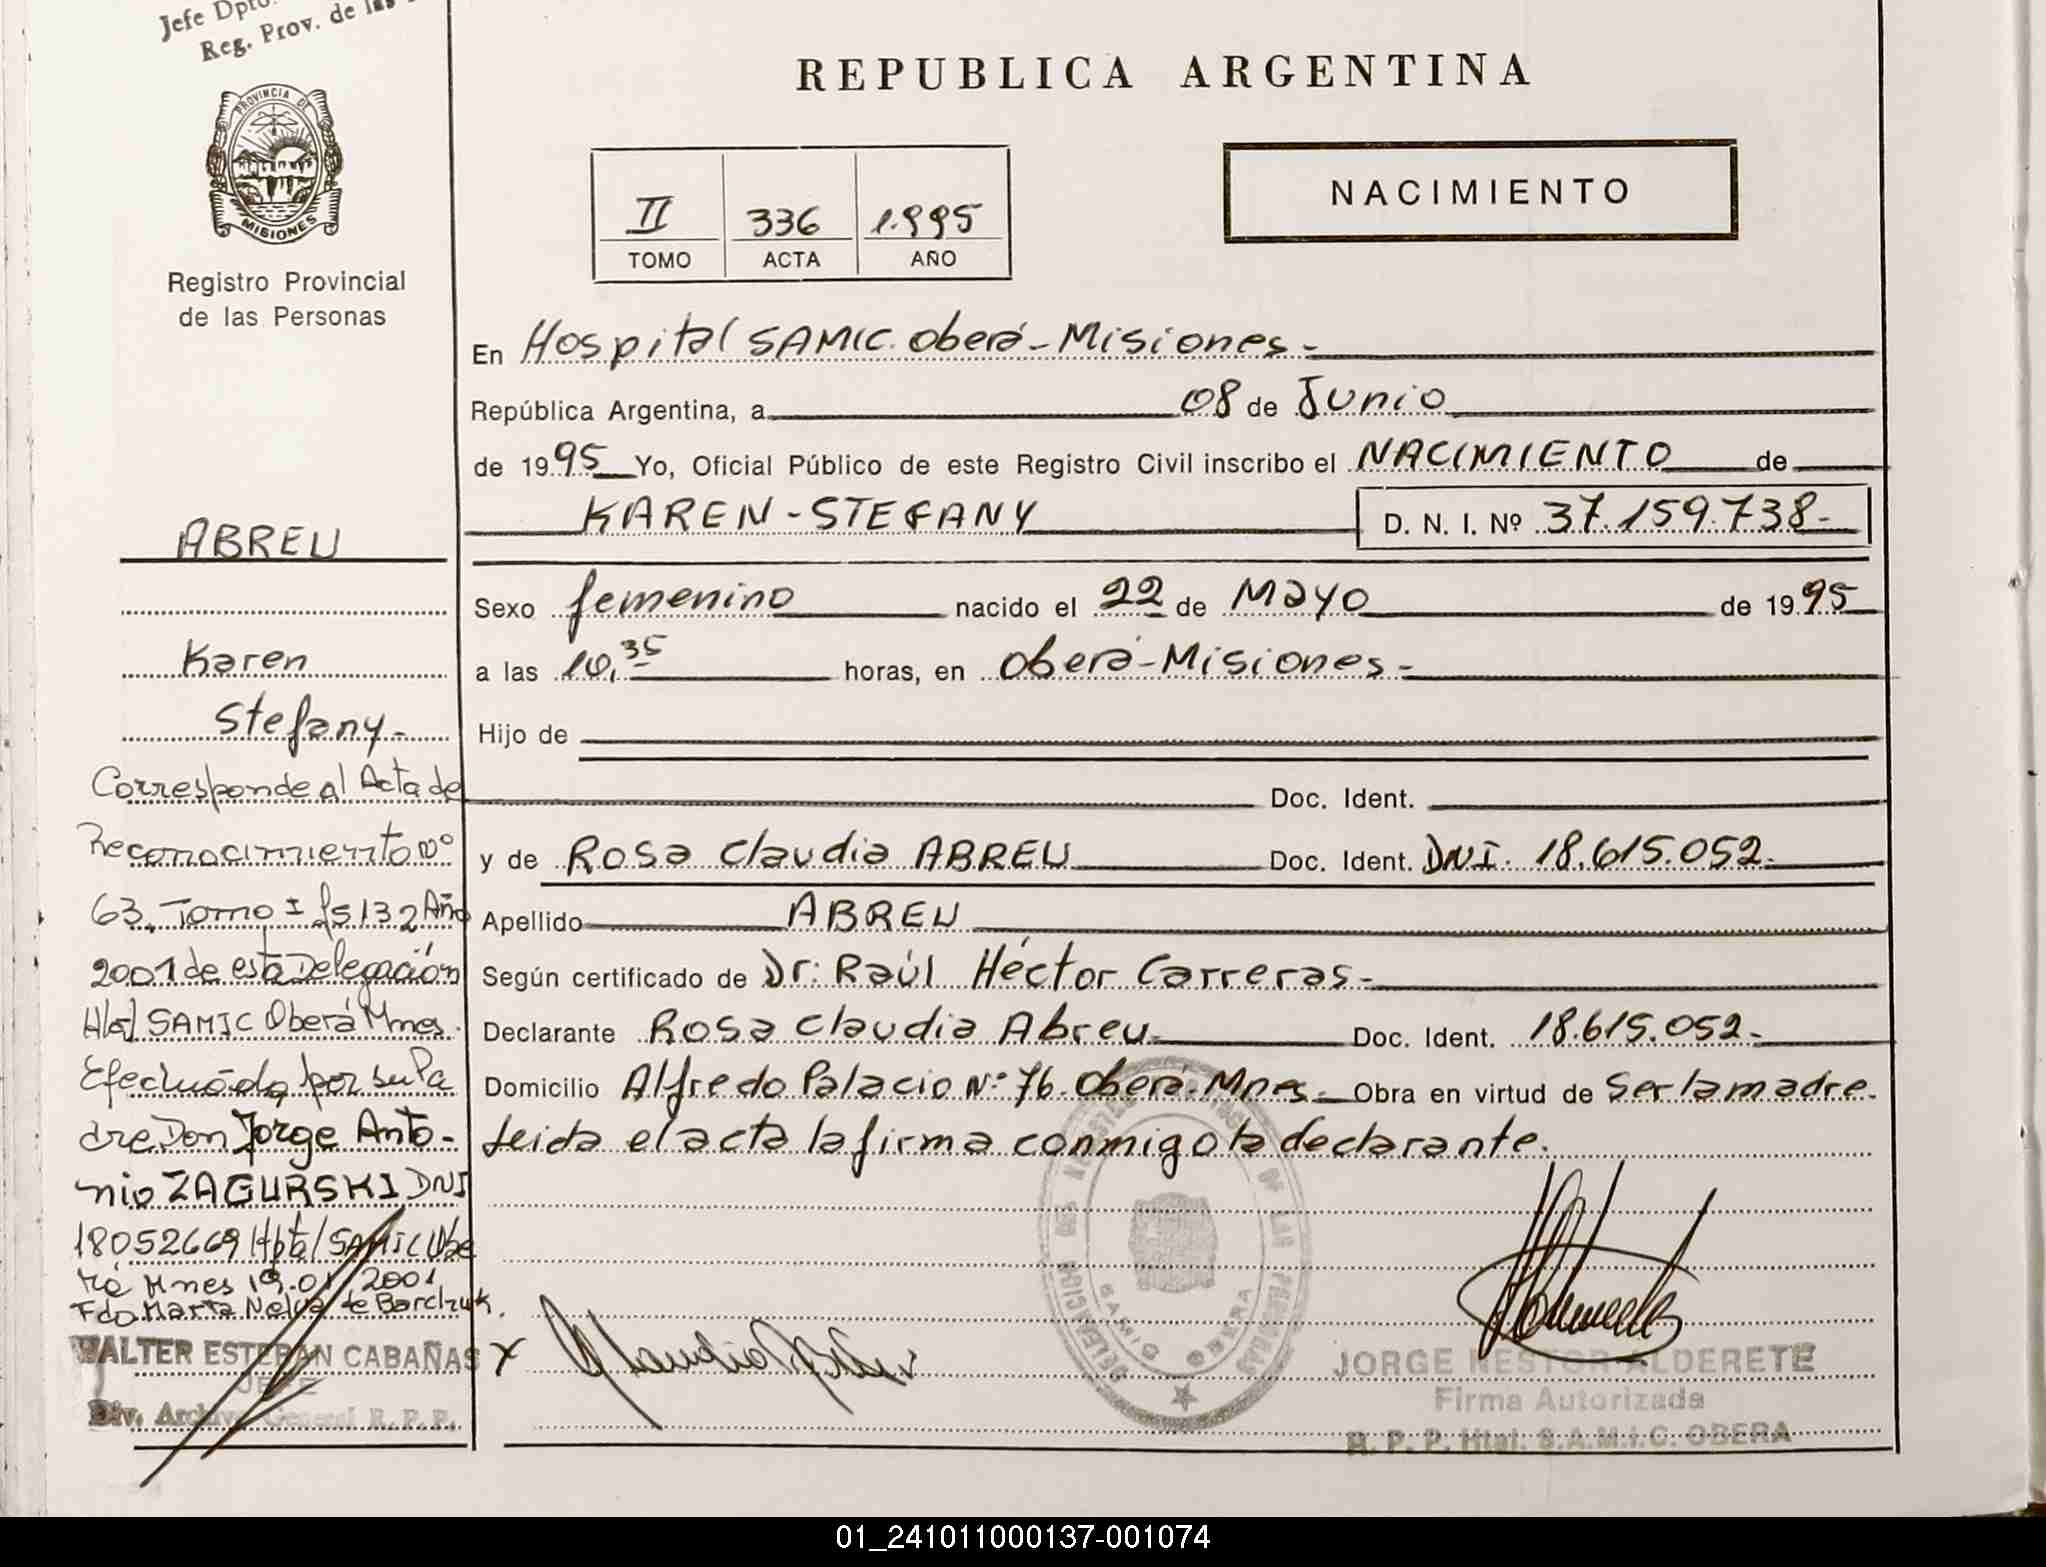 Jefe Dpto.
Reg. Prov. de las
PROVINCIA DE
MISIONES
Registro Provincial
de las Personas
REPUBLICA ARGENTINA
II 336 1.995
TOMO ACTA AÑO
NACIMIENTO
En Hospital SAMIC. Oberá-Misiones-
República Argentina, a 08 de Junio
de 1995 Yo, Oficial Público de este Registro Civil inscribo el NACIMIENTO de
KAREN-STEFANY D. N. I. Nº 37.159.738-
Sexo femenino nacido el 22 de Mayo de 1995
a las 10,35 horas, en Oberá-Misiones-
Hijo de
Doc. Ident.
y de Rosa Claudia ABREU Doc. Ident. DNI. 18.615.052-
Apellido ABREU
Según certificado de Dr: Raúl Héctor Carreras-
Declarante Rosa Claudia Abreu- Doc. Ident. 18.615.052-
Domicilio Alfredo Palacio Nº 76. Oberá-Mnes- Obra en virtud de Ser la madre.
Leida el acta la firma conmigo la declarante.
ABREU
Karen
Stefany-
Corresponde al Acta de
Reconocimiento Nº
63, Tomo I fs 132 Año
2001 de esta Delegación
Htal SAMIC Oberá Mnes.
Efectuada por su Pa
dre Don Jorge Anto-
nio ZAGURSKI DNI
18052669 Hptal SAMIC Obe
rá Mnes 19.01.2001
Fdo Marta Nelva de Barczuk.
WALTER ESTEBAN CABAÑAS
JEFE
Div. Archivo General R.P.P.
X
DELEGACION DEL REGISTRO DE LAS PERSONAS
SAMIC OBERA
JORGE NESTOR ALDERETE
Firma Autorizada
R. P. P. Htal. S.A.M.I.C. OBERA
01_241011000137-001074